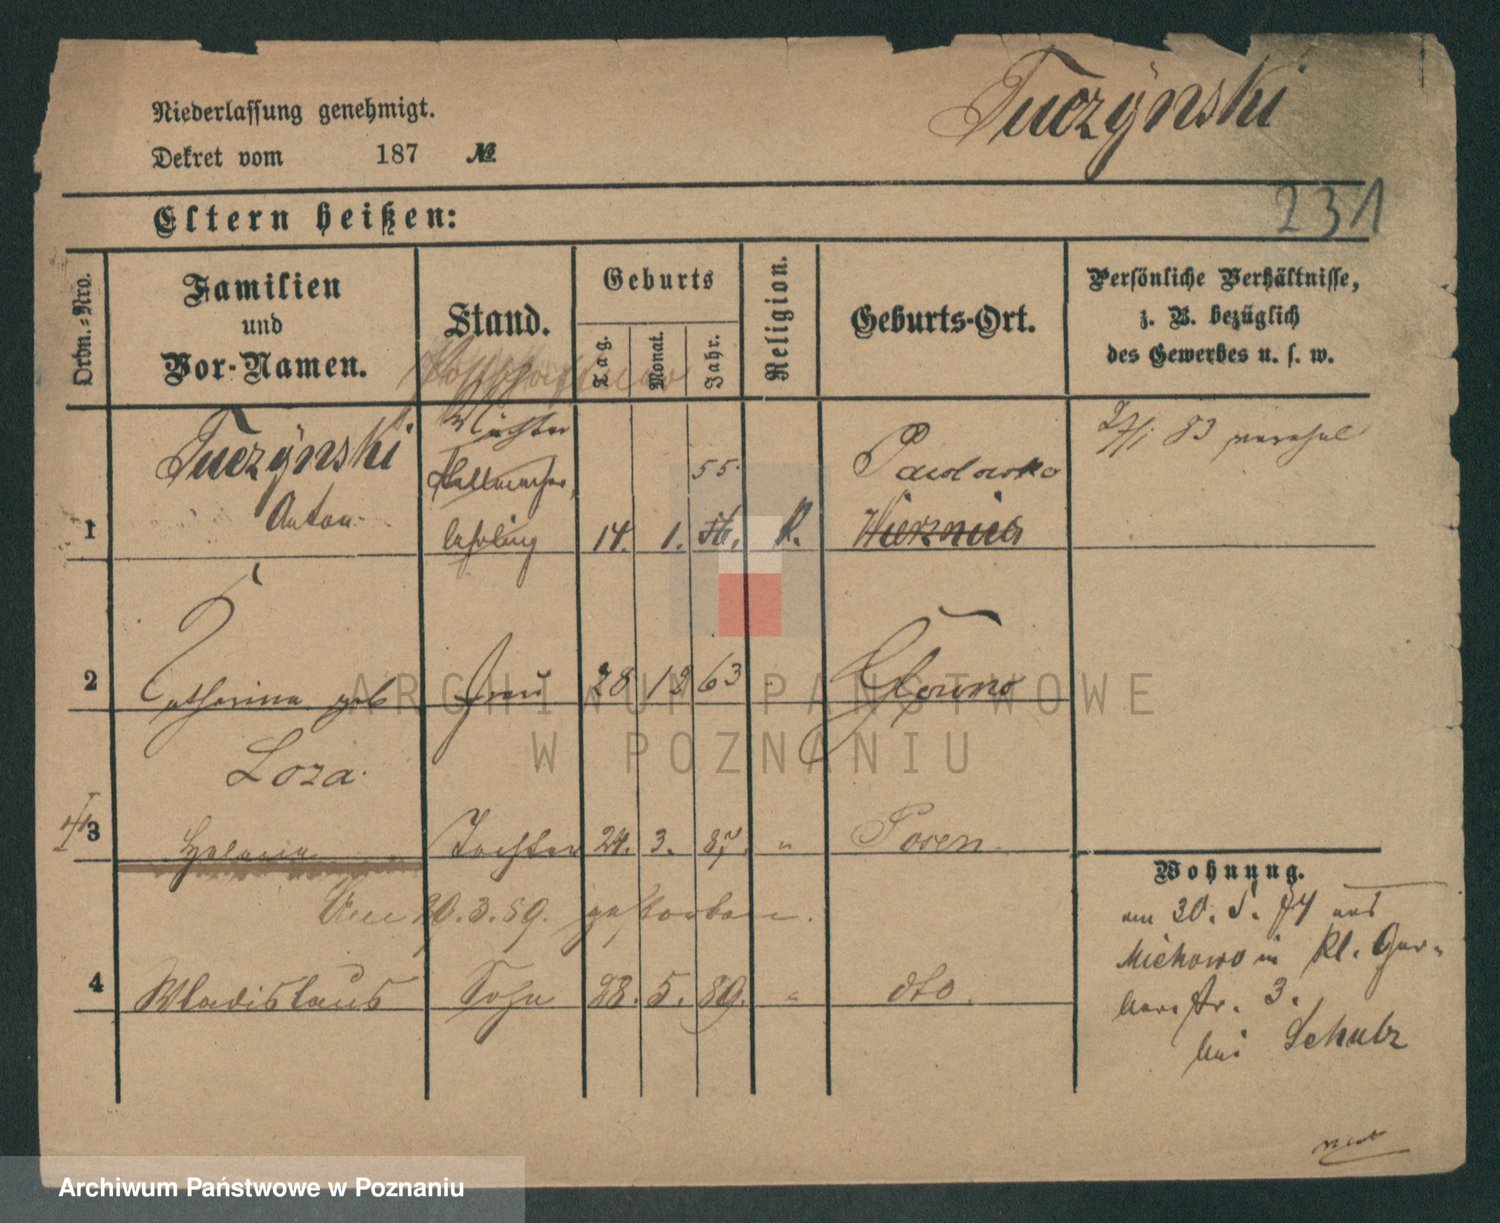 Tuczynski
Niederlassung genehmigt.
Dekret vom 187 №
231
Eltern heißen:
Ordn.-Nro.
Familien
und
Vor-Namen.
Stand.
Geburts
Tag.
Monat.
Jahr.
Religion.
Geburts-Ort.
Persönliche Verhältnisse,
z. B. bezüglich
des Gewerbes u. s. w.
Tuczynski
Wächter
55
Pawlowko
83
1 Anton lehrling 14. 1. R. Wierznica
2 Catharina geb Frau 28 12 63 Glowno
Loza
3 Helena Tochter 24. 3. 87. " Posen
Am 20.3.89. gestorben.
4 Wladislaus Sohn 28. 5. 89. " dto.
Wohnung.
am 30. 5. 74 aus
Miechowo in Kl. Ger-
berstr. 3.
bei Schulz
ARCHIWUM PAŃSTWOWE
W POZNANIU
Archiwum Państwowe w Poznaniu